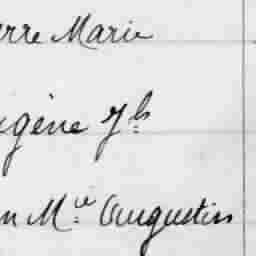 erre Marie
gène Yh
n Mie Augustin